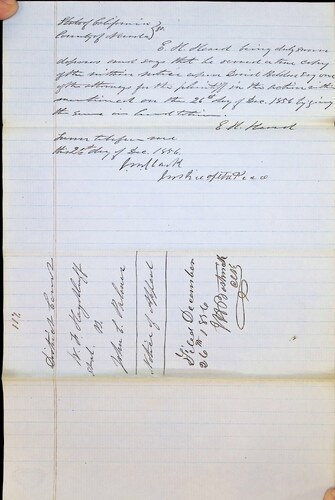 State of California } ss
County of Nevada }
E. H. Heard being duly sworn
deposes and says that he served a true copy
of the within notice upon David Belden Esq one
of the attorneys for the plaintiff in this action within
mentioned on the 26th day of Dec. 1856 by giving
the same in hand to him.
E. H. Heard
Sworn to before me
this 26th day of Dec. 1856.
Justice of the Peace
District Court
W. F.
John C.
Notice of Appeal
Filed December
26th 1856
Bostwick
Clk